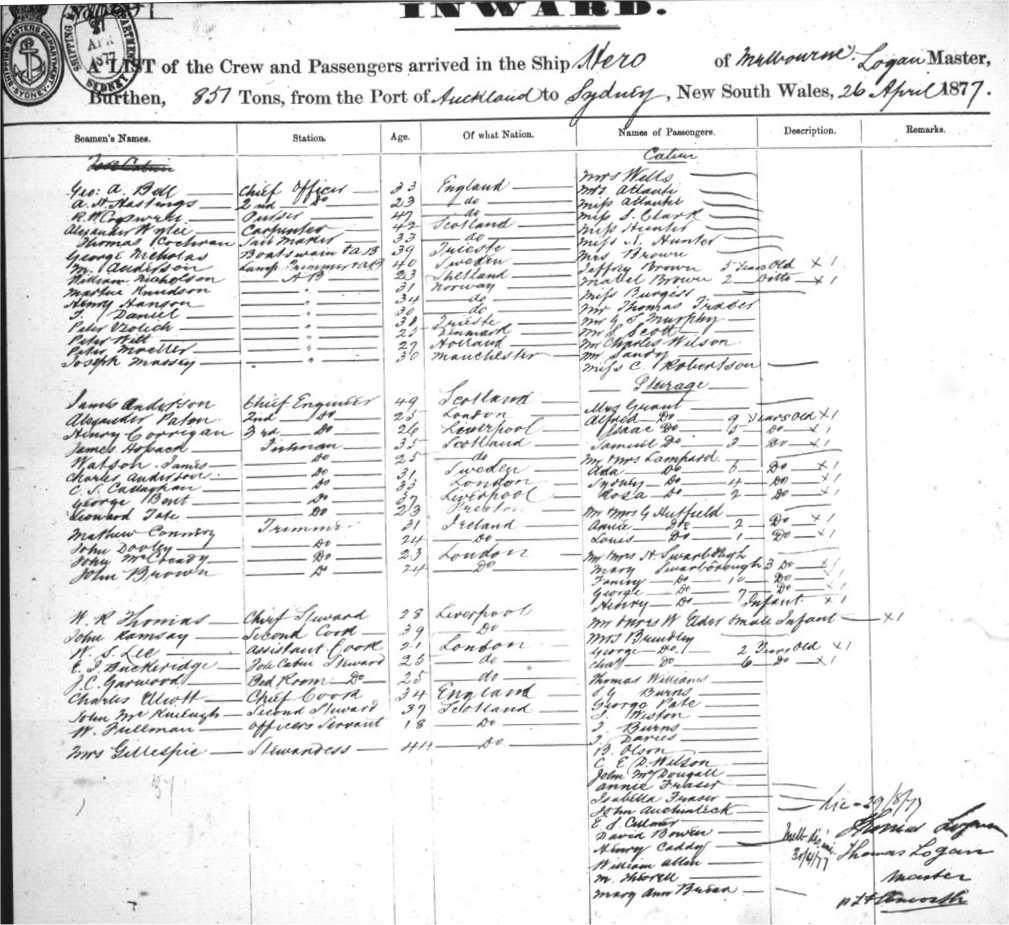 INWARD.
SHIPPING MASTERS DEPARTMENT SYDNEY
SHIPPING DEPARTMENT SYDNEY
27 APR 1877
A LIST of the Crew and Passengers arrived in the Ship Hero of Melbourne Logan Master,
Burthen, 851 Tons, from the Port of Auckland to Sydney, New South Wales, 26 April 1877.
Seamen's Names. Station. Age. Of what Nation. Names of Passengers. Description. Remarks.
Cabin
Mrs Wells
Geo: A. Bell Chief Officer 33 England Mrs Atlantic
A. H. Hastings 2nd Do 23 do Miss Atlantic
Purser 47 do Miss J. Clark
Alexander Wylie Carpenter 42 Scotland Miss Hunter
Thomas Cochran Sail Maker 33 do Miss A. Hunter
George Nicholas Boatswain & AB 39 Trieste Mrs Brown
M. Anderson Lamp Trimmer & AB 40 Sweden Jeffrey Brown 5 Years Old x1
William Nicholson AB 23 Shetland Mabel Brown 2 Ditto x1
Martin Knudson " 31 Norway Miss Burgess
Henry Hanson " 34 do Mr Thomas Fraser
J. Daniel " 30 do Mr G J Murphy
Peter " 31 Trieste Mr S Scott
Peter Witt " 25 Denmark Mr Charles Wilson
Peter Moeller " 27 Holland Mr Sandy
Joseph Massey " 30 Manchester Miss C. Robertson
Steerage
James Anderson Chief Engineer 49 Scotland Mrs Grant
Alexander Paton 2nd Do 25 London Alfred Do 9 Years Old x1
Henry Corrigan 3rd Do 26 Liverpool Isaac Do 5 Do x1
James Fireman 35 Scotland Samuel Do 3 Do x1
Watson James Do 25 do Mr Mrs Lampard
Charles Anderson Do 31 Sweden Ada Do 6 Do x1
C. S. Callaghan Do 33 London Sydney Do 4 Do x1
George Bent Do 37 Liverpool Rosa Do 2 Do x1
Leonard Tate Do 23 Preston Mr Mrs G Hutfield
Mathew Connery Trimmer 31 Ireland Annie Do 2 Do x1
John Dooley Do 24 Do Louis Do 1 Do x1
John McCready Do 23 London Mr Mrs H Swarbrough
John Brown Do 24 Do Mary Swarborough 3 Do x1
Fanny Do 10 Do x1
George Do 7 Do x1
Henry Do Infant x1
W. R. Thomas Chief Steward 28 Liverpool Mr Mrs W Elder Small Infant x1
John Ramsay Second Cook 39 Do Mrs Brindley
W. S. Lee Assistant Cook 21 London George Do 2 Years Old x1
E. J. Buckeridge Fore Cabin Steward 25 do Chas Do 6 Do x1
J. C. Garwood Bed Room Do 25 do Thomas Williams
Charles Chief Cook 34 England S G Burns
John Second Steward 37 Scotland George Pate
W. Fullman Officers Servant 18 Do J. Weston
J. Burns
Mrs Gillespie Stewardess 44 Do J. Davies
B. Olson
C E D. Wilson
John McDougall
Annie Fraser
Isabella Fraser
John Auchinleck
E J
David Bowen
Henry Caddy
William Allen
M.
Mary Ann
30/4/77
Thomas Logan
Thomas Logan
Master